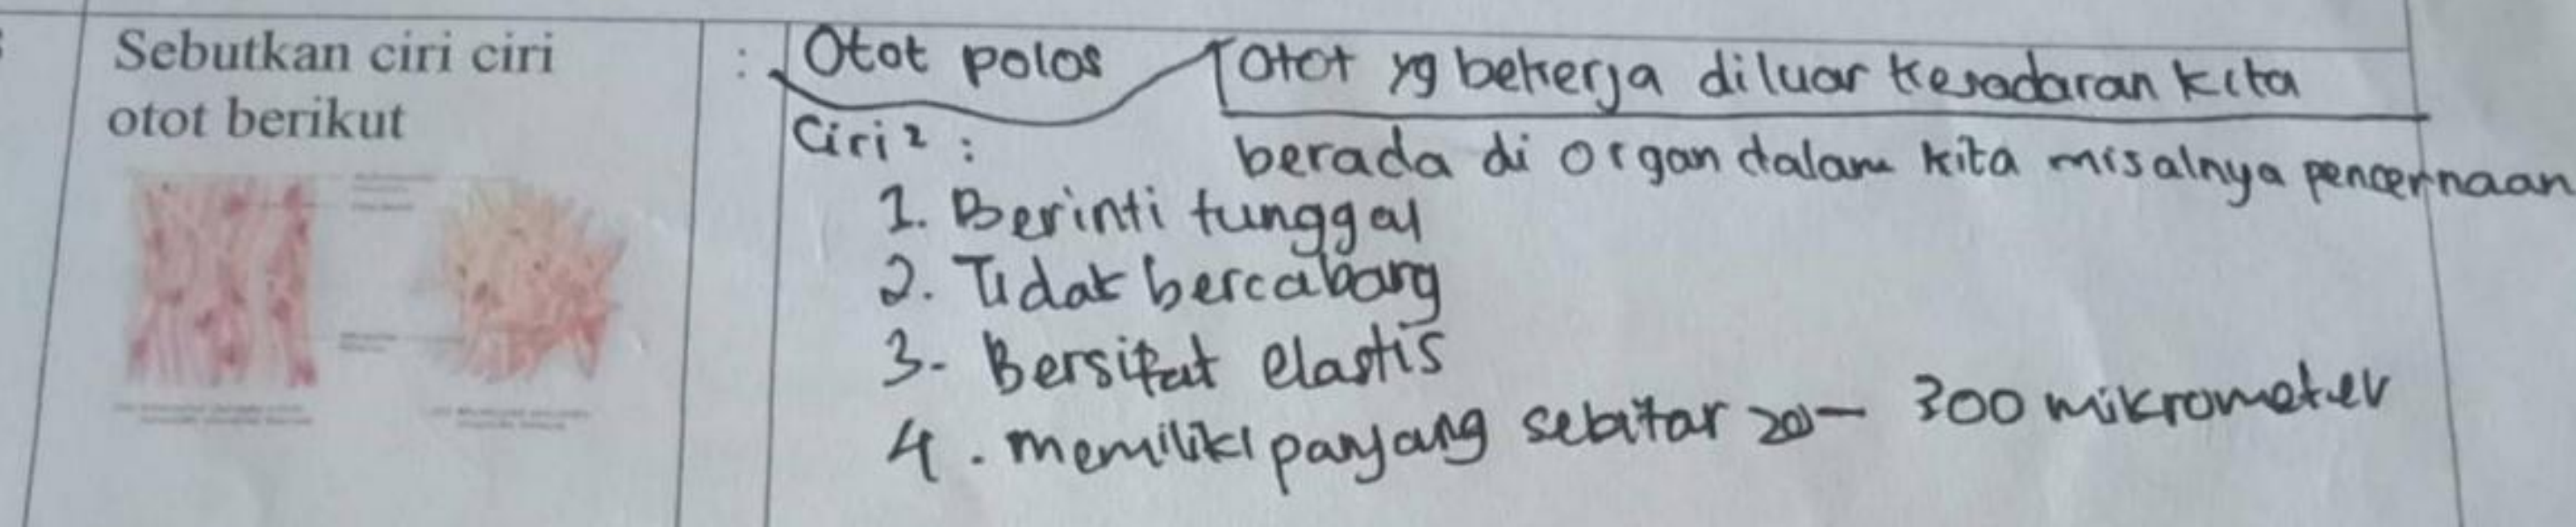 Sebutkan ciri ciri
otot berikut
: Otot polos
Otot yg bekerja diluar kesadaran kita
Ciri² :
berada di organ dalam kita misalnya pencernaan
1. Berinti tunggal
2. Tidak bercabang
3. Bersifat elastis
4. memiliki panjang sekitar 20 - 300 mikrometer